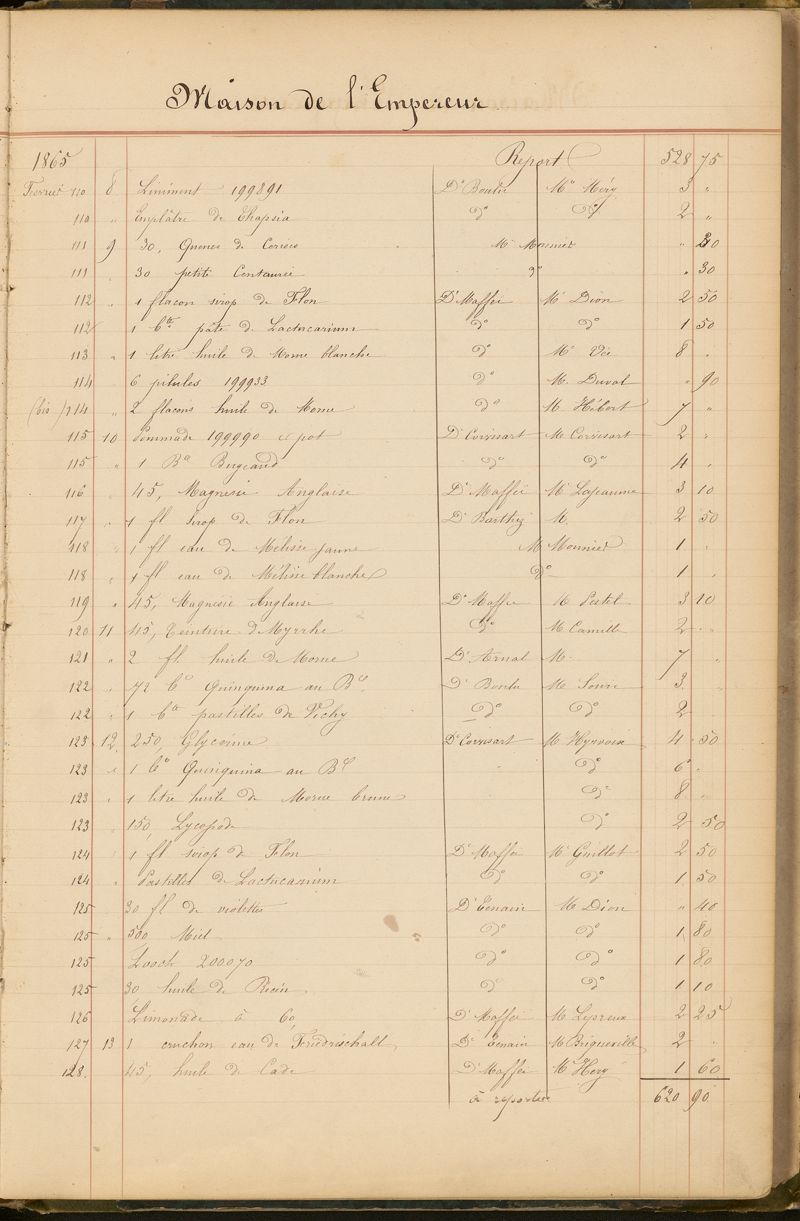 Maison de l'Empereur
1865 Report 528 75
Fevrier 110 8 Liniment 199891 Dr Boulu Me Méry 3 "
110 " Emplâtre de Thapsia do do 2 "
111 9 30, Queues de Cerises Mr Meunier " 30
111 30 petite Centaurée do " 30
112 " 1 flacon sirop de Flon Dr Maffei Mr Dion 2 50
112 " 1 bte pâte de Lactucarium do do 1 50
113 " 1 litre huile de Morue blanche do Mr Vée 8 "
114 6 pilules 199933 do M. Duval " 90
(bis) 114 " 2 flacons huile de Morue do M Hébert 7 "
115 10 Pommade 199990 et pot Dr Corvisart M Corvisart 2 "
115 " 1 Bl Bugeaud do do 4 "
116 45, Magnésie Anglaise Dr Maffei Mr Lajeaunne 3 10
117 " 1 fl sirop de Flon Dr Barthez M. 2 50
118 " 1 fl eau de Mélisse jaune M Monnier 1 "
118 " 1 fl eau de Mélisse blanche do 1 "
119 " 45, Magnésie Anglaise Dr Maffei M Pestel 3 10
120 11 45, Teinture de Myrrhe do M Camille 2 "
121 " 2 fl huile de Morue Dr Arnal M. 7 "
122 " 72 bo Quinquina au Bx Dr Boulu M. 3 "
122 " 1 bte pastilles de Vichy do do 2
123 12 250, Glycérine Dr Corvisart M Hyrvoix 4 50
123 " 1 bo Quinquina au Bx do 6 "
123 " 1 litre huile de Morue brune do 8 "
123 150, Lycopode do 2 50
124 " 1 fl sirop de Flon Dr Maffei Mr Guillot 2 50
124 " Pastilles de Lactucarium do do 1 50
125 30 fl de violettes Dr Tenain M Dion " 40
125 " 500 Miel do do 1 80
125 Looch 200070 do do 1 80
125 30 huile de Ricin. do do 1 10
126 Limonade à 60, Dr Maffei M Lepreux 2 25
127 13 1 cruchon eau de Friedrischall Dr Tenain M Brigueville 2 "
128. 45, huile de Cade Dr Maffei Me Héry 1 60
à reporter 620 90